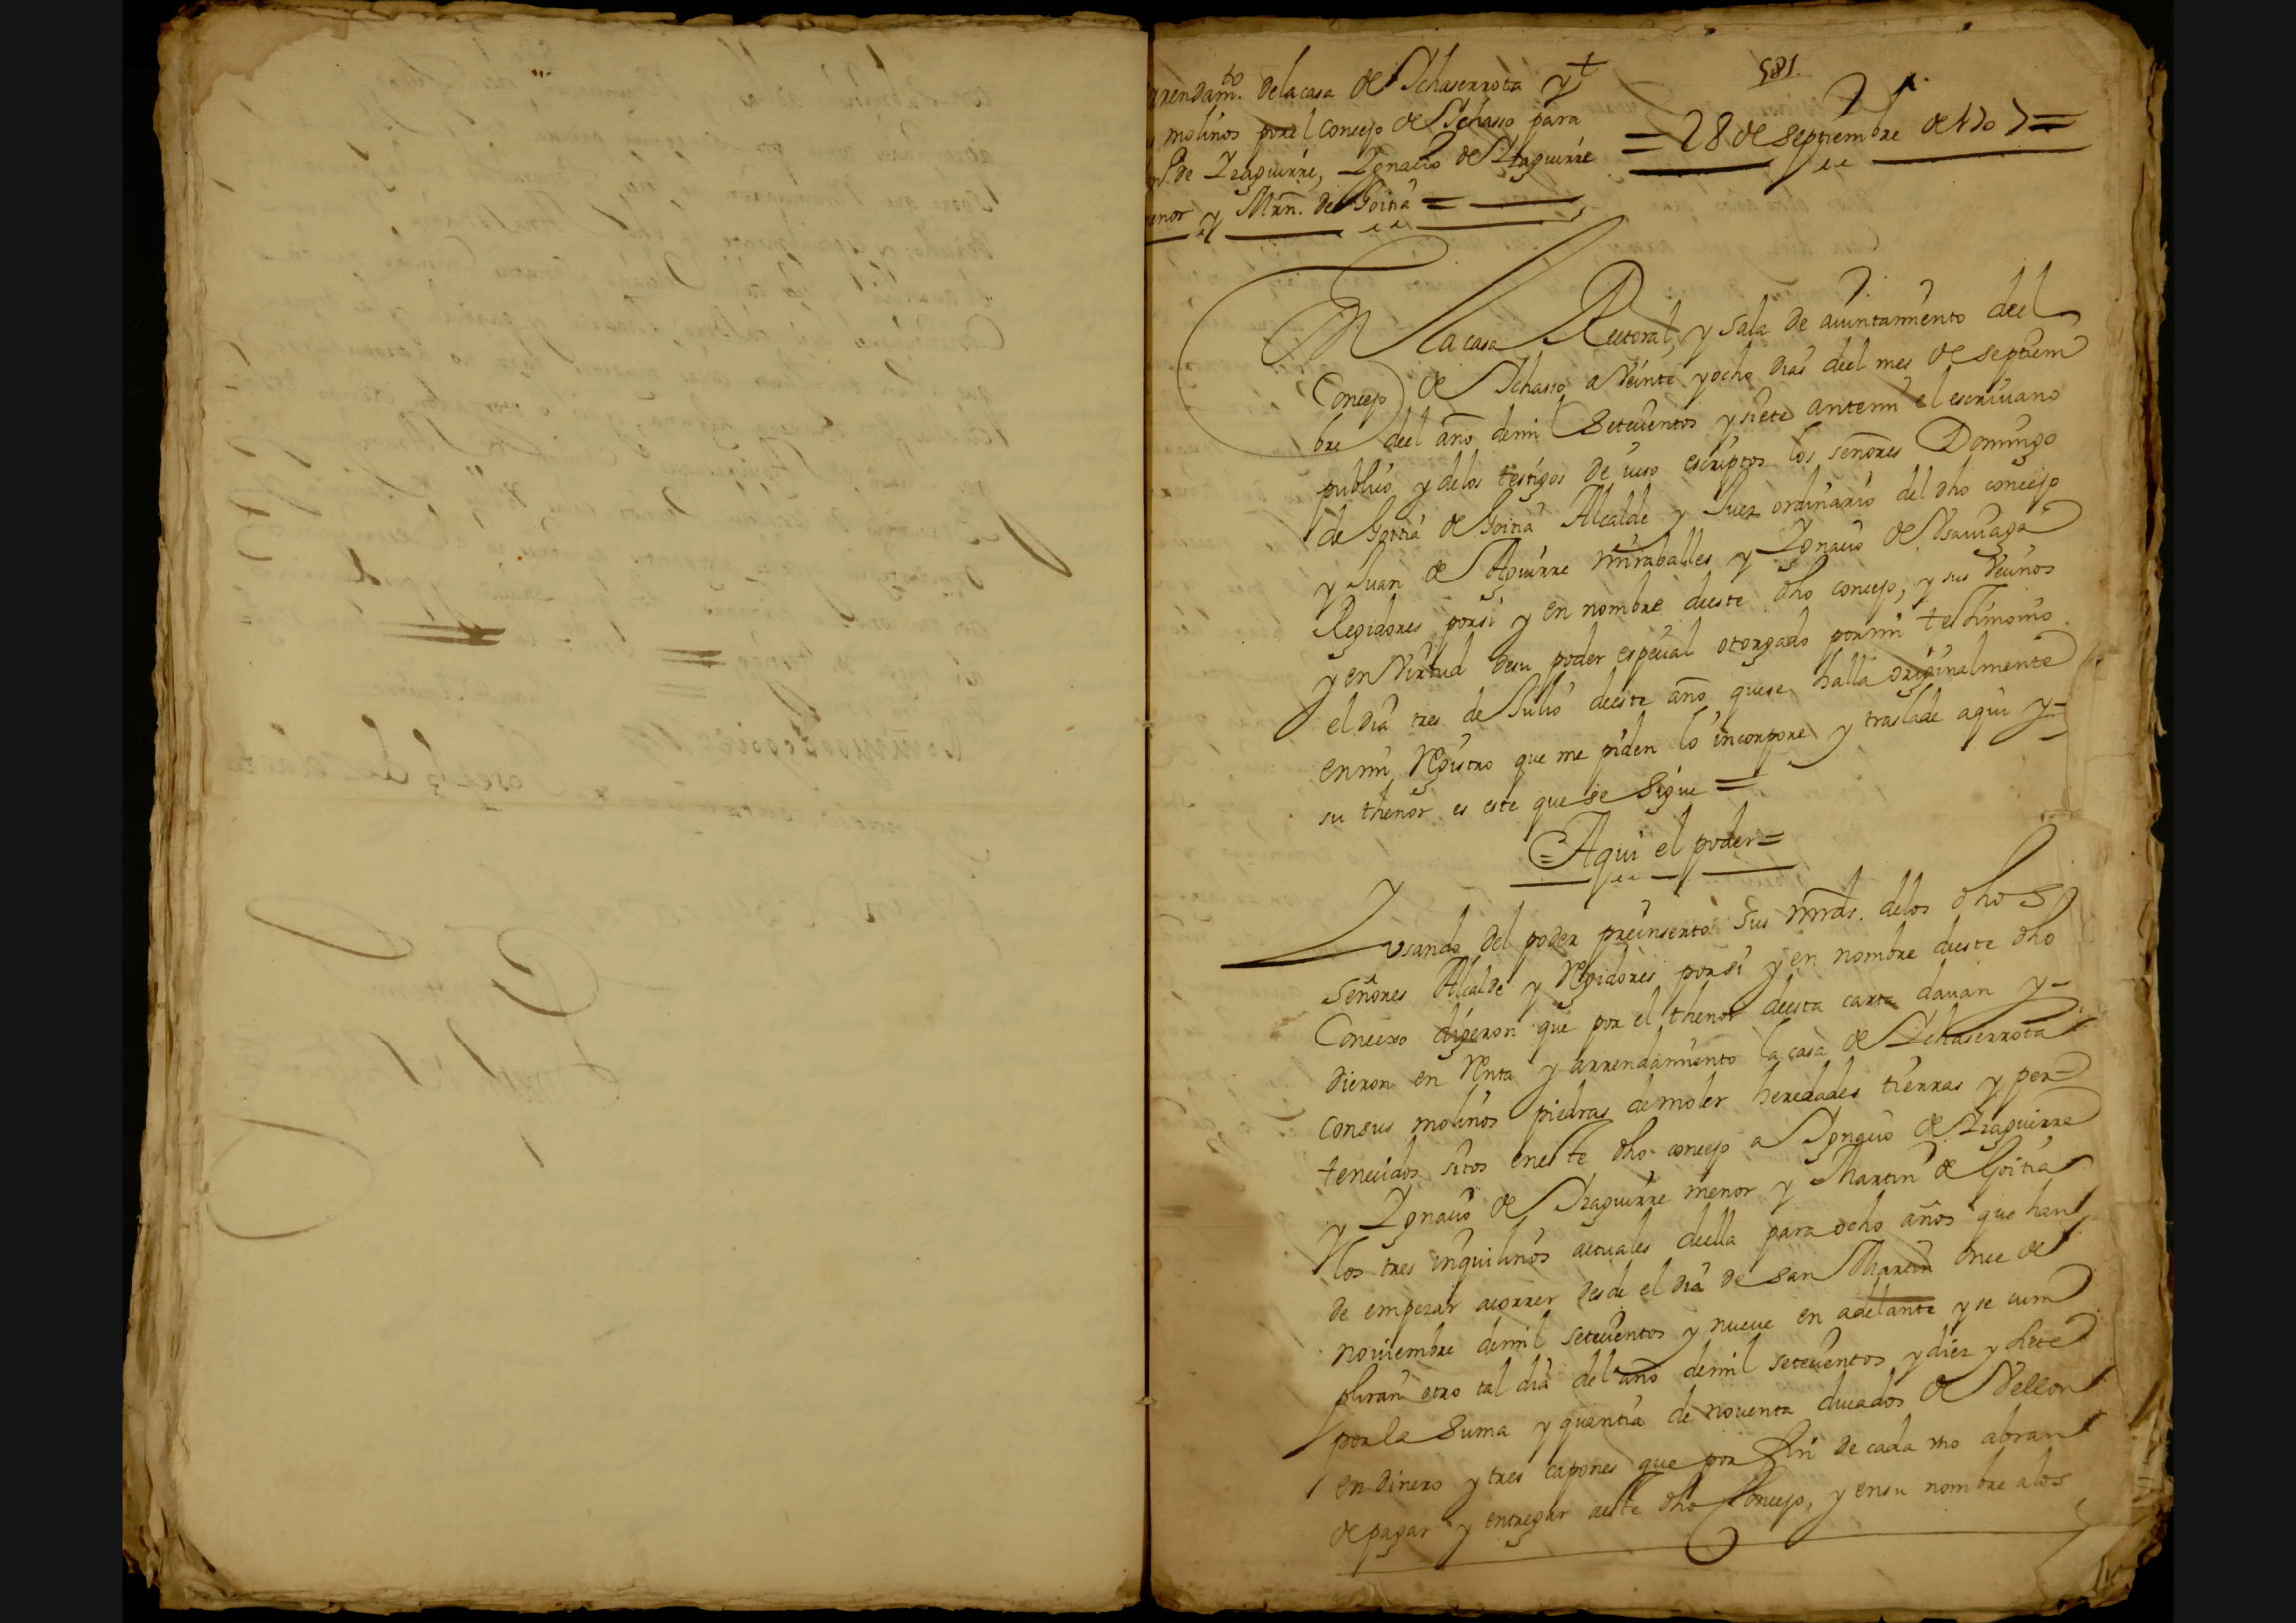 581.
arrendam.to de la casa de Ichaserrota y
molinos por el concejo de Ichasso para
de Izaguirre, Ignacio de Izaguirre
menor y Mrn. de Goitia =
= 28 de septiembre de 1707 =
En la casa Rectoral, y sala de aiuntamiento deel
Concejo de Ichasso a veinte y ocho dias deel mes de septiem
bre deel año de mil setecientos y siete ante mi el escrivano
publico y de los testigos de iuso escriptos los señores Domingo
de Goitia de Goitia Alcalde y Juez ordinario del dho concejo
y Juan de Aguirre miraballes y Ignacio de Usauiaga
Regidores por si y en nombre deeste dho concejo, y sus vecinos
y en virtud de su poder especial otorgado por mi testimonio
el dia tres de Julio deeste año que se halla originalmente
en mi registro que me piden lo incorpore y traslade aqui y
su thenor es este que se sigue =
= Aqui el poder =
Y usando del poder preinserto sus mrds. de los dhos
señores Alcalde y Regidores por si y en nombre deeste dho
Concexo digeron que por el thenor deesta carta dauan y
dieron en renta y arrendamiento la casa de Ichaserrota
con sus molinos piedras de moler heredades tierras y per
tenecidos sitos en este dho concejo a Ignacio de Izaguirre
y Ignacio de Izaguirre menor y Martin de Goitia
los tres inquilinos actuales deella para ocho años que han
de empezar a correr desde el dia de san Martin once de
noviembre de mil setecientos y nueue en adelante y se cum
pliran otro tal dia del año de mil setecientos y diez y siete
por la suma y quantia de nouenta ducados de vellon
en dinero y tres capones que por fin de cada vno abran
de pagar y entregar a este dho Concejo, y en su nombre a los